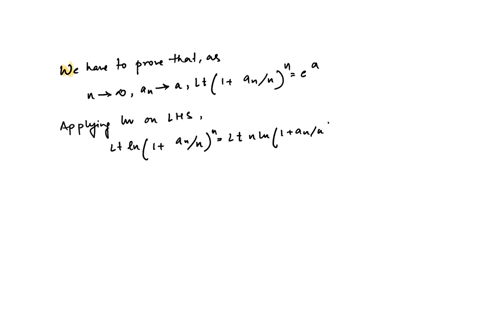 We have to prove that, as
n → ∞, aₙ → a, Lt (1 + aₙ/n)ⁿ = eᵃ
Applying ln on LHS,
Lt ln (1 + aₙ/n)ⁿ = Lt n ln (1 + aₙ/n